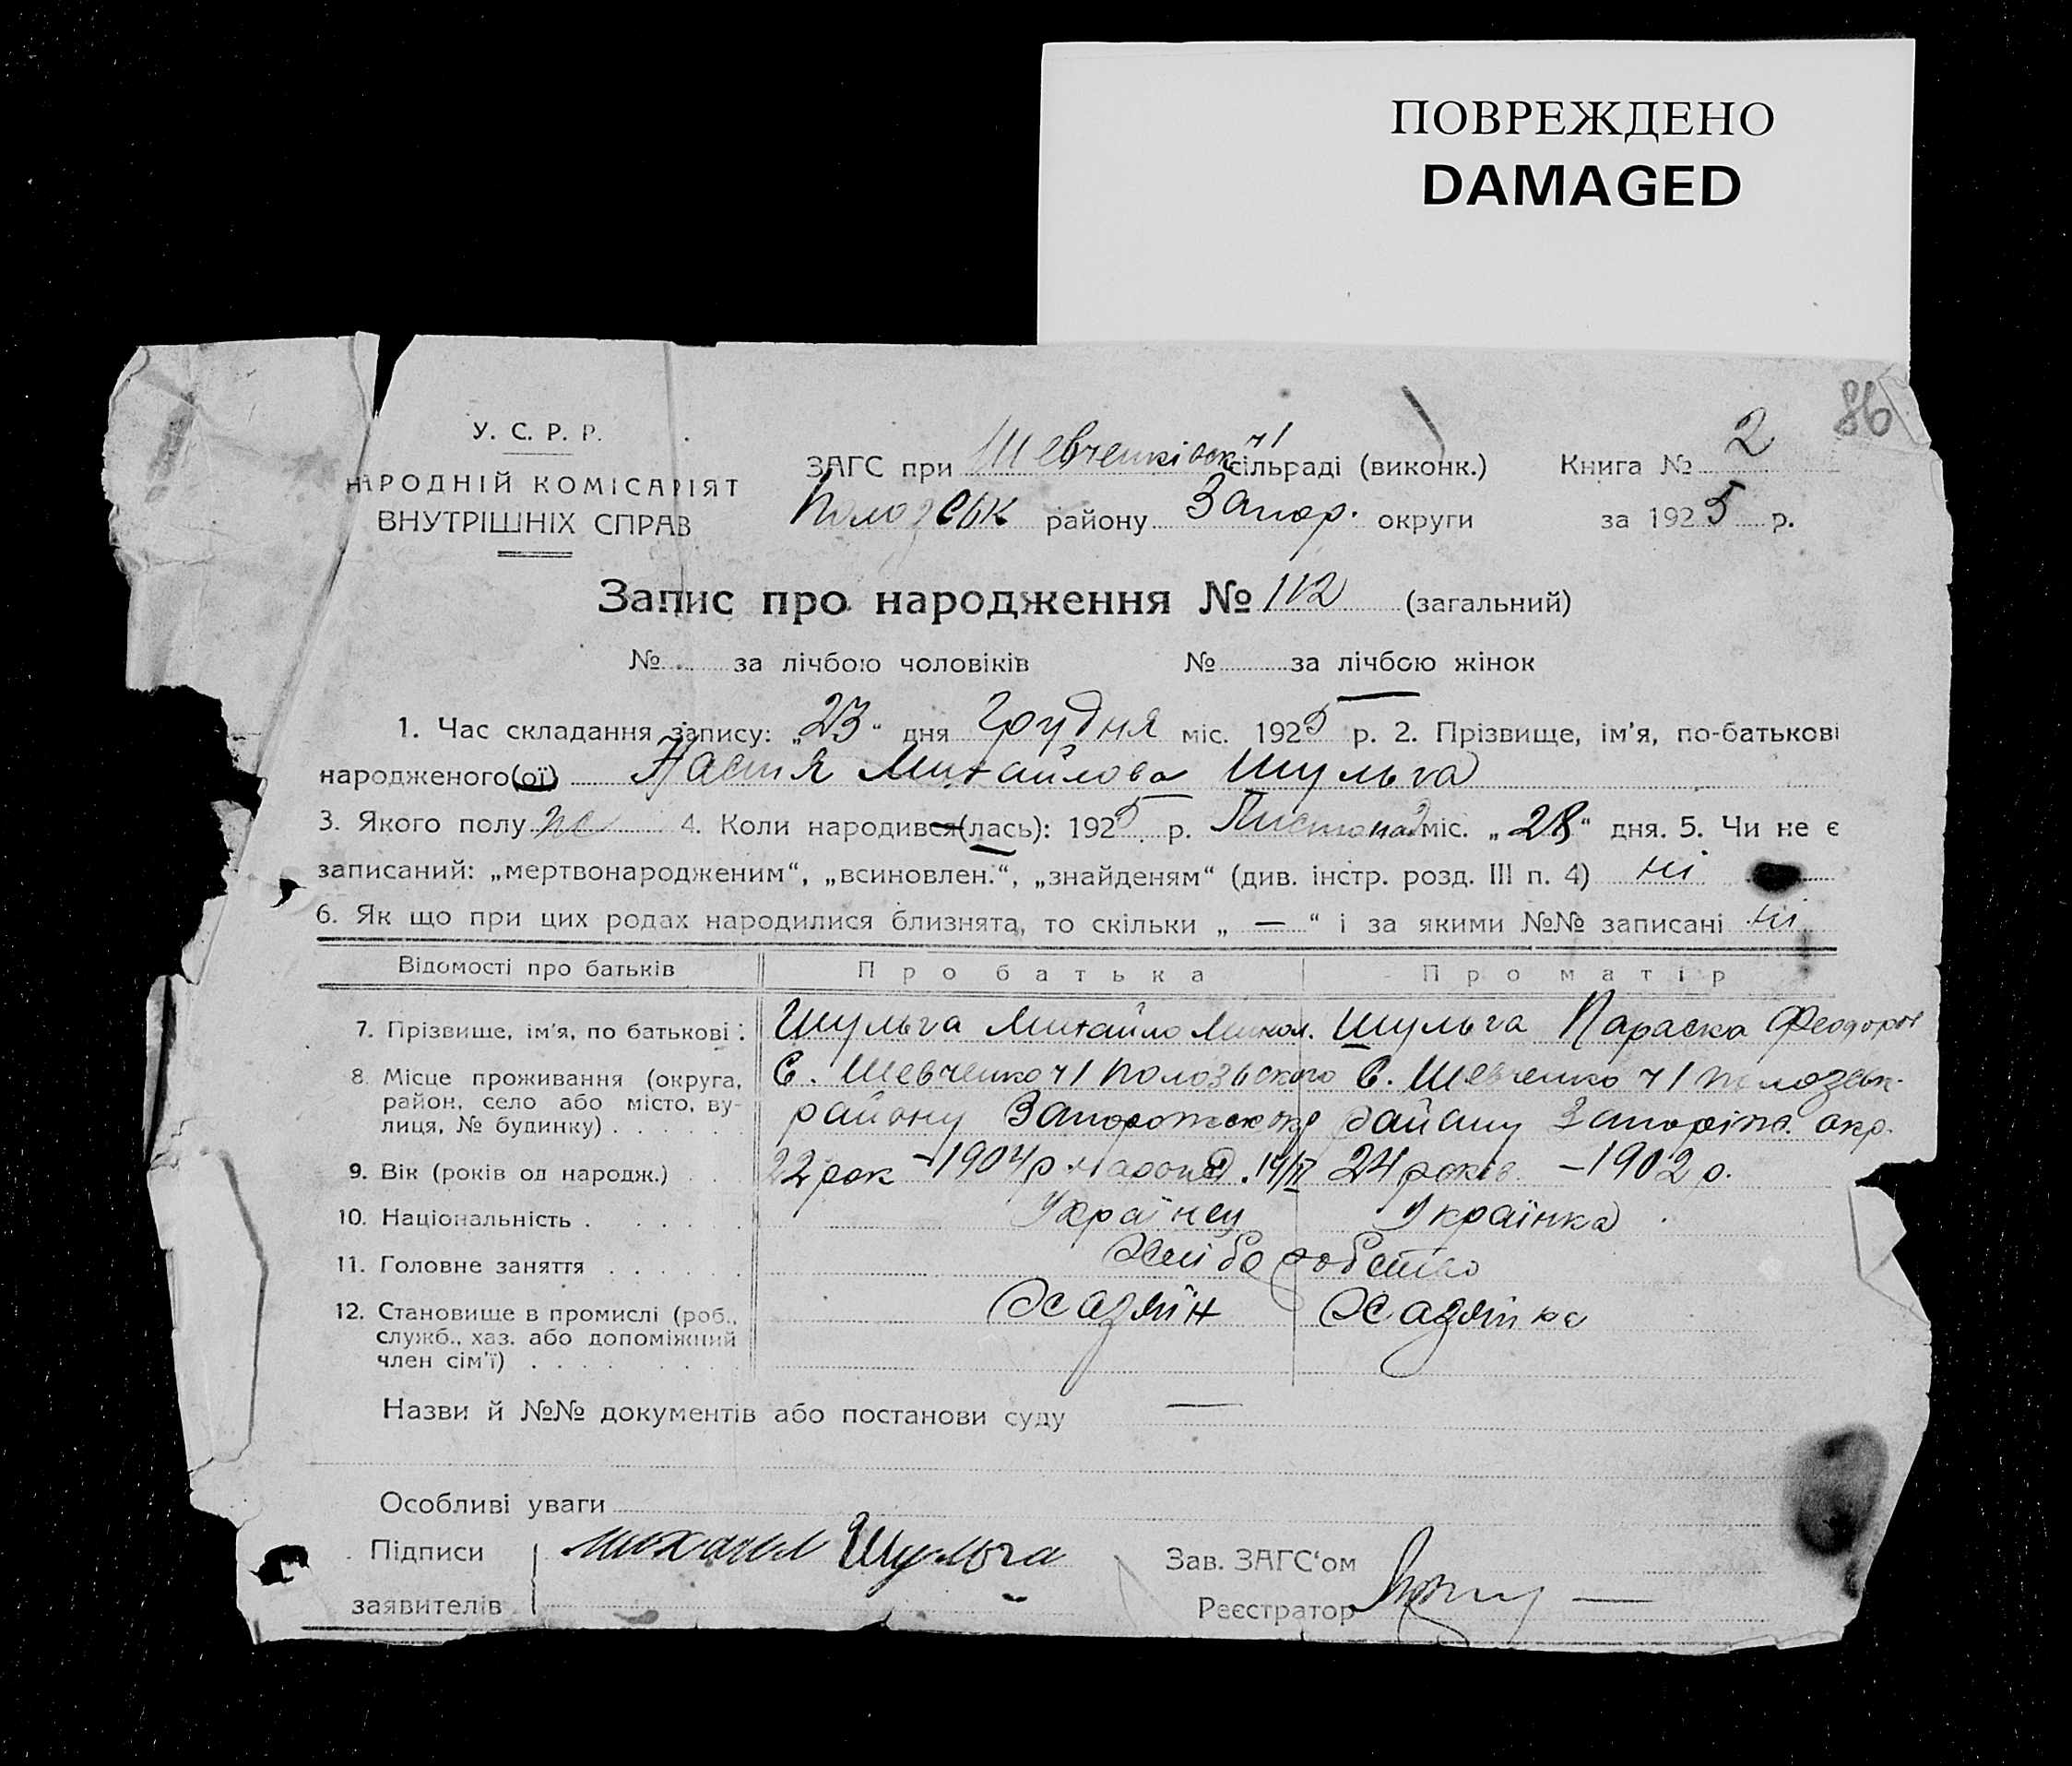 ПОВРЕЖДЕНО
DAMAGED
86
У. С. Р. Р.
НАРОДНІЙ КОМІСАРІЯТ
ВНУТРІШНІХ СПРАВ
ЗАГС при Шевченківск ч1 сільраді (виконк.) Книга № 2
Пологськ району Запор. округи за 1925 р.
Запис про народження № 112 (загальний)
№ за лічбою чоловіків № за лічбою жінок
1. Час складання запису: „23“ дня Грудня міс. 1925 р. 2. Прізвище, ім'я, по-батькові
народженого(ої) Настя Михайлова Шульга
3. Якого полу жс 4. Коли народився(лась): 1925 р. Листопад міс. „28“ дня. 5. Чи не є
записаний: „мертвонародженим“, „всиновлен.“, „знайденям“ (див. інстр. розд. III п. 4) ні
6. Як що при цих родах народилися близнята, то скільки „ — “ і за якими №№ записані ні
Відомості про батьків Про батька Про матір
7. Прізвище, ім'я, по батькові: Шульга Михайло Микол. Шульга Параска Феодоров
8. Місце проживання (округа, район, село або місто, вулиця, № будинку) С. Шевченко ч1 Пологського С. Шевченко ч1
району Запорожской району Запоріж. окр.
9. Вік (років од народж.) 22 рок – 1904 р 24 років – 1902 р.
10. Національність Українец Українка
11. Головне заняття Хліборобство
12. Становище в промислі (роб., служб., хаз. або допоміжний член сім'ї) Хазяїн Хазяїнка
Назви й №№ документів або постанови суду —
Особливі уваги
Підписи Михаил Шульга Зав. ЗАГС'ом
заявителів Реєстратор